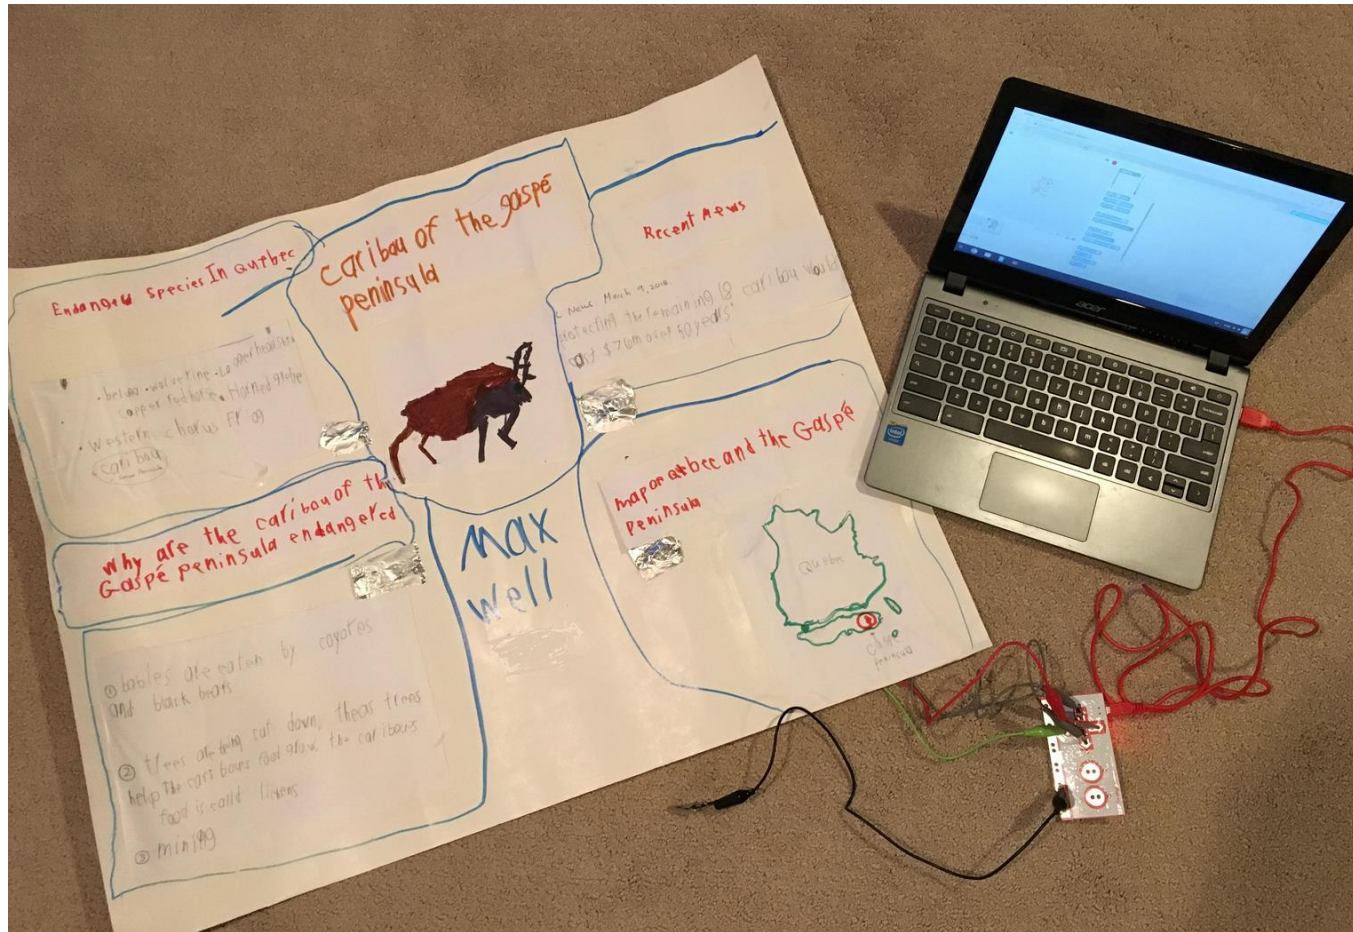 Endangerd Species In Quebec
beluga • wolverine •
copper redhorse • Horned grebe
• western chorus Frog
caribou
caribou of the gaspé
peninsula
Recent News
News March 9, 2018
protecting the remaining 18 caribou would
cost $76m over 50 years
why are the caribou of the
Gaspé peninsula endangered
① babies are eaten by coyotes
and black bears
② trees are being cut down, theas trees
help the caribous food grow. the caribous
food is calld
③ mining
Max
Well
map of and the Gaspé
Peninsula
Quebec
Gaspé
peninsula
acer
intel